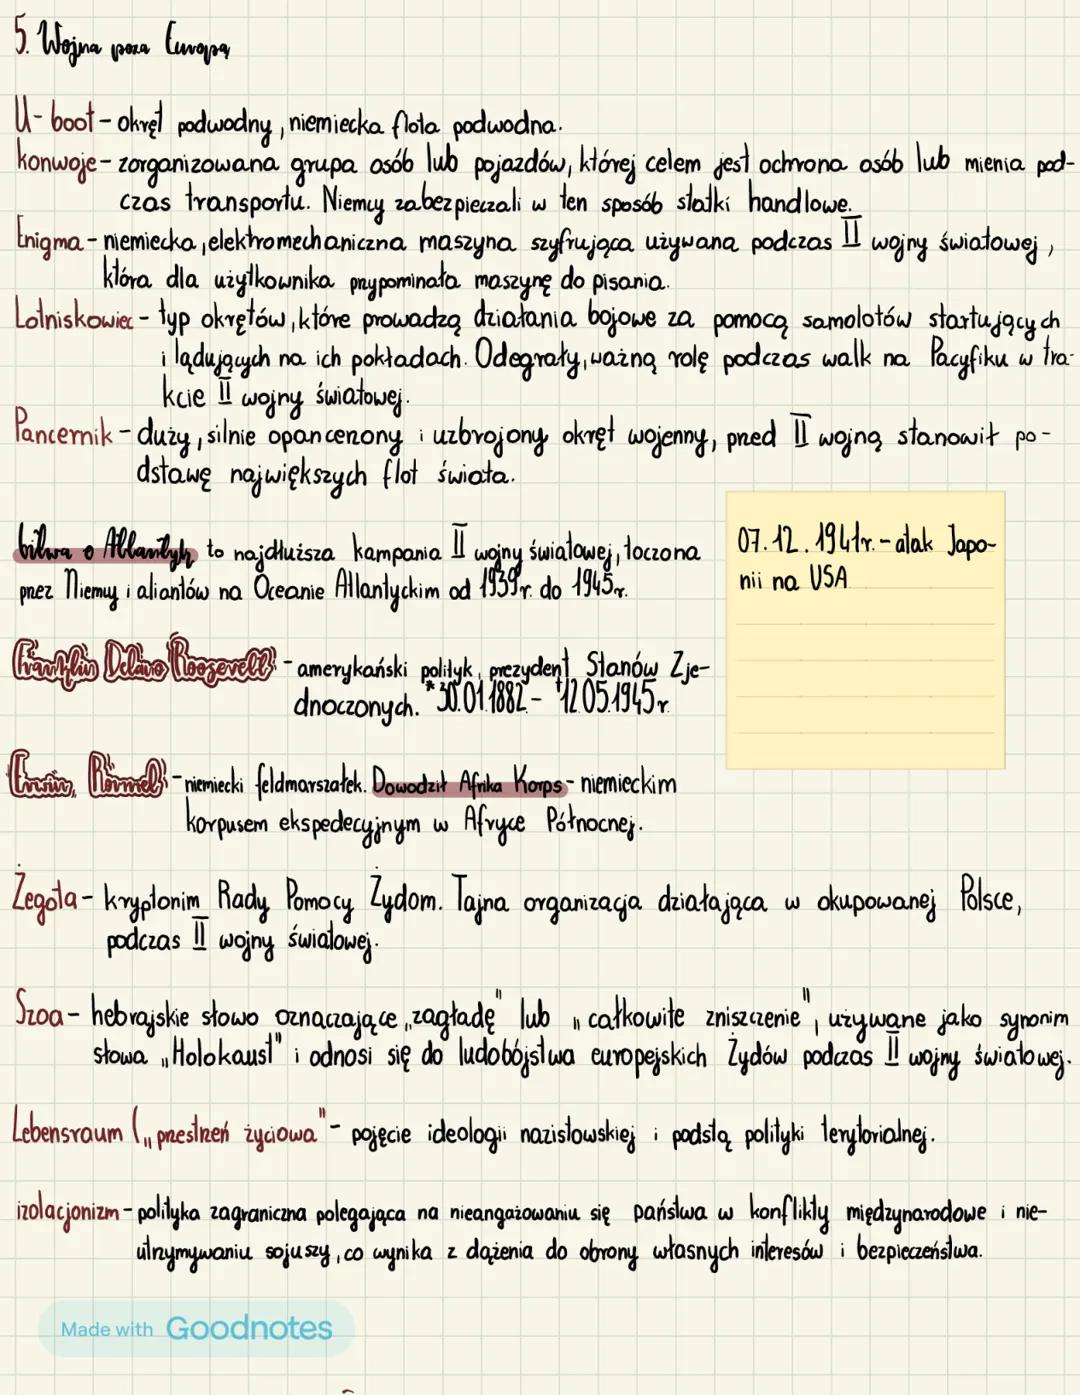 5. Wojna poza Europą
U-boot - okręt podwodny, niemiecka flota podwodna.
konwoje - zorganizowana grupa osób lub pojazdów, której celem jest ochrona osób lub mienia pod-
czas transportu. Niemcy zabezpieczali w ten sposób statki handlowe.
Enigma - niemiecka, elektromechaniczna maszyna szyfrująca używana podczas II wojny światowej,
która dla użytkownika przypominała maszynę do pisania.
Lotniskowiec - typ okrętów, które prowadzą działania bojowe za pomocą samolotów startujących
i lądujących na ich pokładach. Odegrały, ważną rolę podczas walk na Pacyfiku w tra-
kcie II wojny światowej.
Pancernik - duży, silnie opancerzony i uzbrojony okręt wojenny, przed II wojną stanowił po-
dstawę największych flot świata.
bitwa o Atlantyk to najdłuższa kampania II wojny światowej, toczona
przez Niemcy i aliantów na Oceanie Atlantyckim od 1939r. do 1945r.
07.12.1941r. - atak Japo-
nii na USA
Franklin Delano Roosevelt - amerykański polityk, prezydent Stanów Zje-
dnoczonych. *30.01.1882 - †12.05.1945r.
Erwin Rommel - niemiecki feldmarszałek. Dowodził Afrika Korps - niemieckim
korpusem ekspedecyjnym w Afryce Północnej.
Żegota - kryptonim Rady Pomocy Żydom. Tajna organizacja działająca w okupowanej Polsce,
podczas II wojny światowej.
Szoa - hebrajskie słowo oznaczające „zagładę" lub „całkowite zniszczenie", używane jako synonim
słowa „Holokaust" i odnosi się do ludobójstwa europejskich Żydów podczas II wojny światowej.
Lebensraum („przestrzeń życiowa" - pojęcie ideologii nazistowskiej i podstą polityki terytorialnej.
izolacjonizm - polityka zagraniczna polegająca na nieangażowaniu się państwa w konflikty międzynarodowe i nie-
utrzymywaniu sojuszy, co wynika z dążenia do obrony własnych interesów i bezpieczeństwa.
Made with Goodnotes